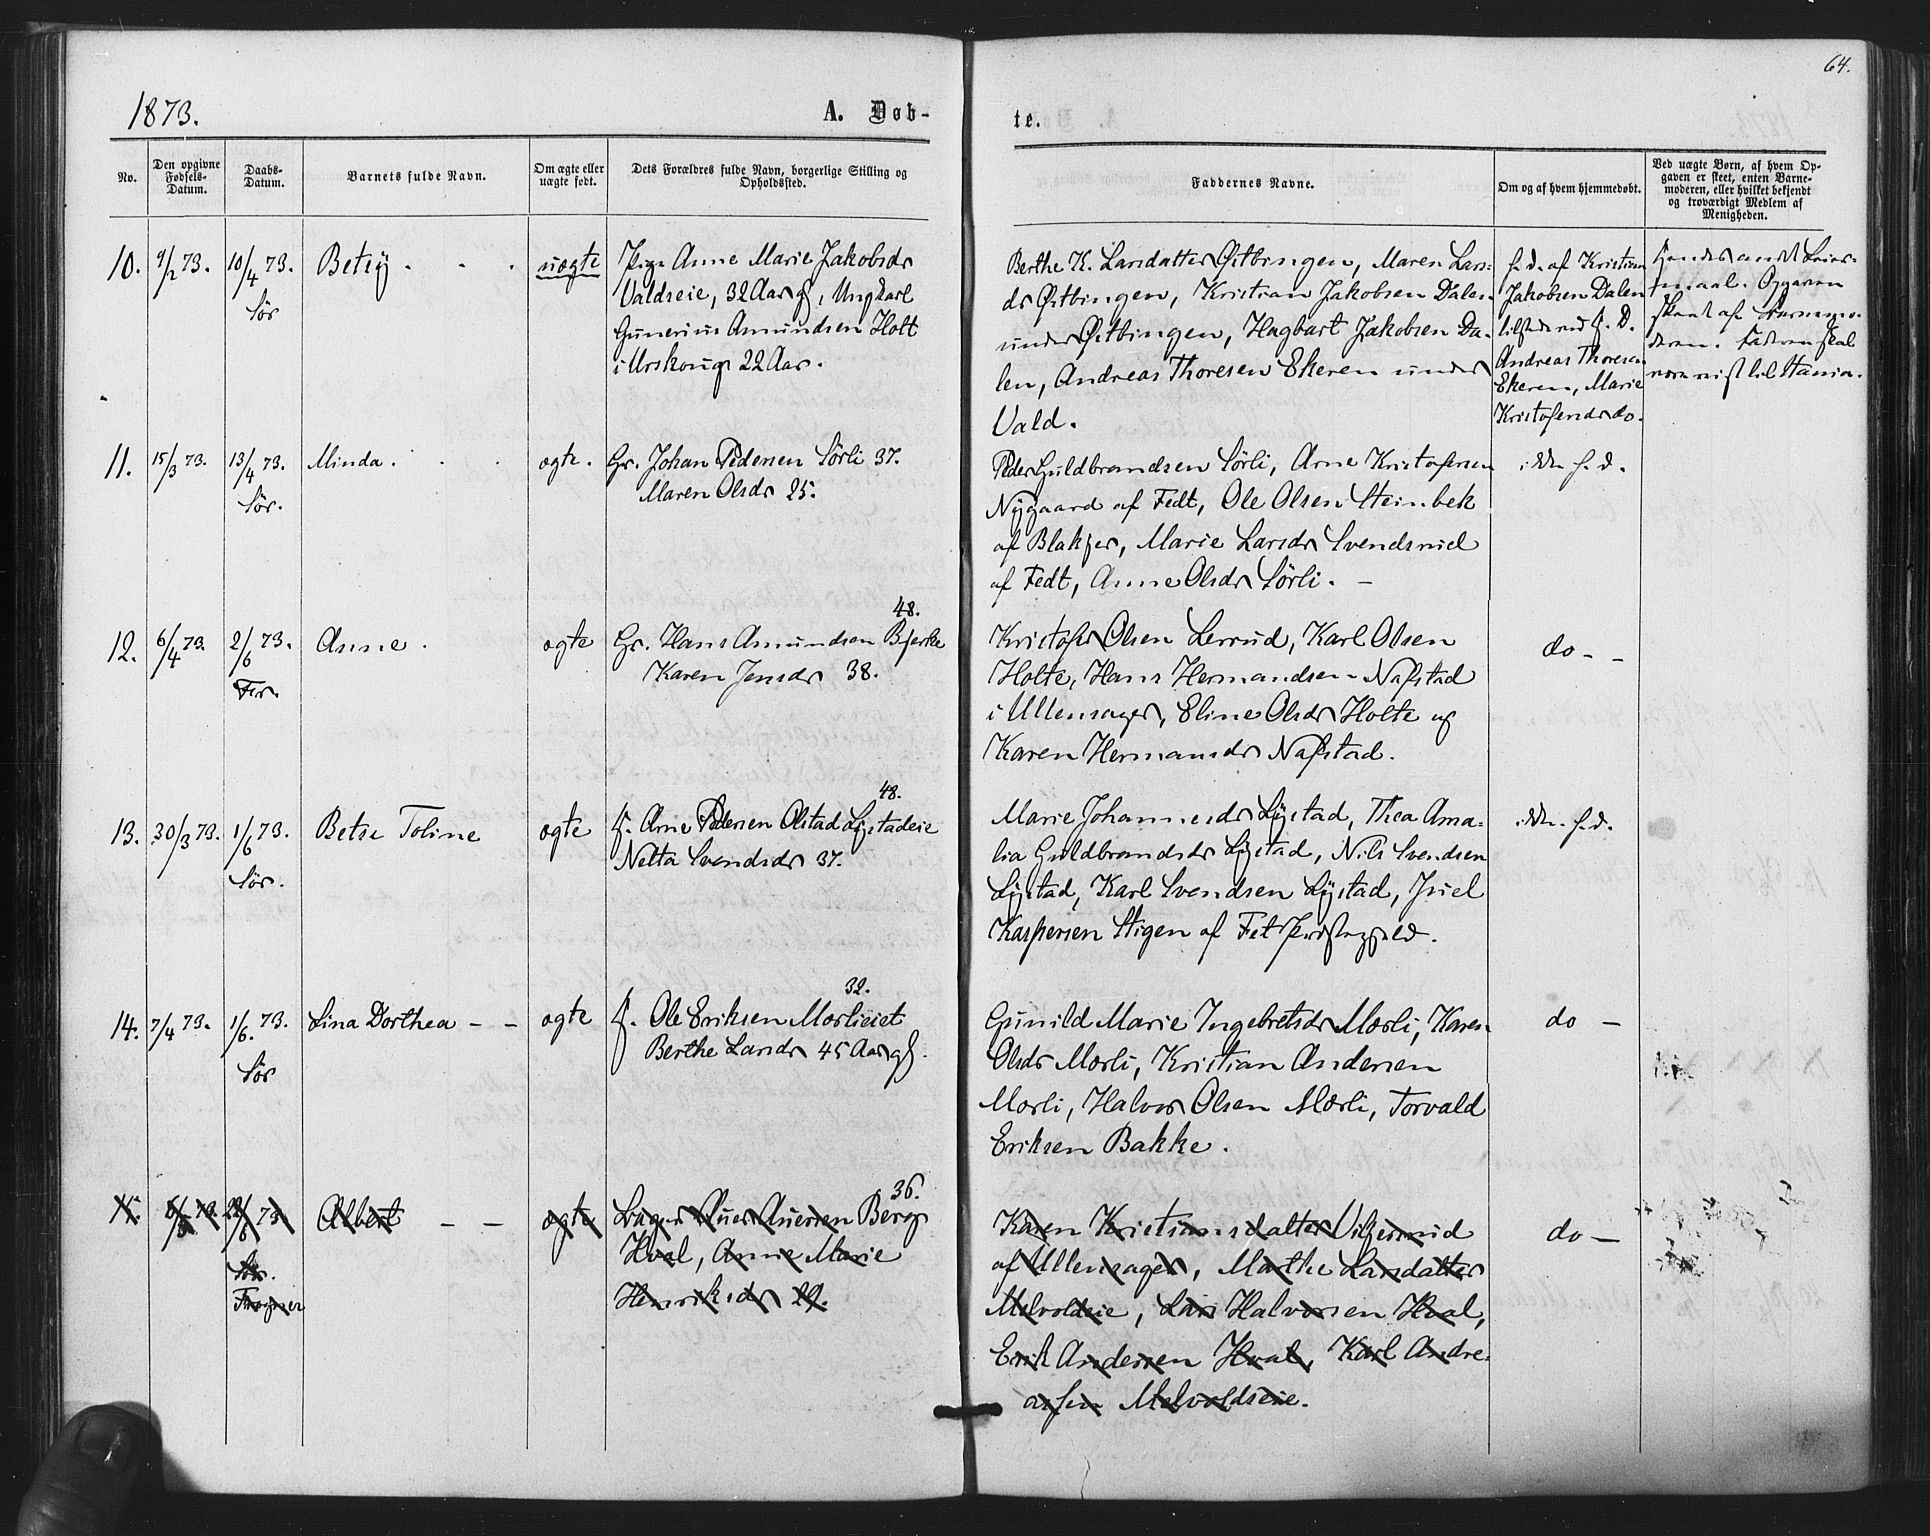 64.
1873.
A. Døb-
te.
No.
Den opgivne Fødsels-Datum.
Daabs-Datum.
Barnets fulde Navn.
Om ægte eller uægte født.
Dets Forældres fulde Navn, borgerlige Stilling og Opholdssted.
Faddernes Navne.
Om og af hvem hjemmedøbt.
Ved uægte Børn, af hvem Op-
gaven er skeet, enten Barne-
moderen, eller hvilket bekjendt
og troværdigt Medlem af
Menigheden.
10. 9/2 73. 10/4 73. Sør Betsy uægte
Pige Anne Marie Jakobsdr
Valdseie, 32 Aar g, Ungkarl
Gunerius Amundsen Holt
i Urskoug 22 Aar.
Berthe K. Larsdatter Østbingen, Maren Lars-
dr Østbingen, Kristian Jakobsen Dalen
under Østbingen, Hagbart Jakobsen Da-
len, Andreas Thoresen Ekeren under
Vald.
h. d. af Kristian
Jakobsen Dalen
tilstede ved H. D.
Andreas Thoresen
Ekeren, Marie
Kristofersdr do.
Hendes andet Leier-
maal. Opgaven
skeet af Barnemo-
deren. Faderen skal
være reist til
11. 15/3 73. 13/4 73. Sør. Minda. ægte.
Gr. Johan Pedersen Sørli 37.
Maren Olsdr 25.
Peder Guldbrandsen Sørli, Arne Kristofersen
Nygaard af Fedt, Ole Olsen Steinbek
af Blakjer, Marie Larsdr Svendsrud
af Fedt, Anne Olsdr Sørli. -
ikke h. d.
12. 6/4 73. 2/6 73. Fr. Anne ægte
48.
Gr. Hans Amundsen Bjerke
Karen Jensdr 38.
Kristofer Olsen Lerrud, Karl Olsen
Holte, Hans Hermandsen Nafstad
i Ullensager, Eline Olsdr Holte og
Karen Hermansdr Nafstad.
do - -
13. 30/3 73. 1/6 73. Sør. Betse Toline ægte
48.
F. Arne Pedersen Olstad Lystadeie
Netta Svendsdr 37.
Marie Johannesdr Lystad, Thea Ama-
lia Guldbrandsdr Lystad, Nils Svendsen
Lystad, Karl Svendsen Lystad, Juel
Kaspersen Stigen af Fet Præstegjeld.
ikke h. d.
14. 7/4 73. 1/6. 73. Sør Lina Dorthea - - ægte
32.
F. Ole Eriksen Mærlieiet
Berthe Larsdr 45 Aar g.
Gunild Marie Ingebretsdr Mærli, Karen
Olsdr Mærli, Kristian Andersen
Mærli, Halvor Olsen Mærli, Torvald
Eriksen Bakke.
do -
15. 73. 73 Sør. Frogner Albert - - ægte
36.
Hval, Anne Marie
Henriksdr 29.
Karen Kristiansdatter Vilbersrud
af Ullensager, Marthe Larsdatter
Melvoldseie, Lars Halvorsen Hval,
Erik Andersen Hval, Karl Andre-
asen Melvoldseie.
do -